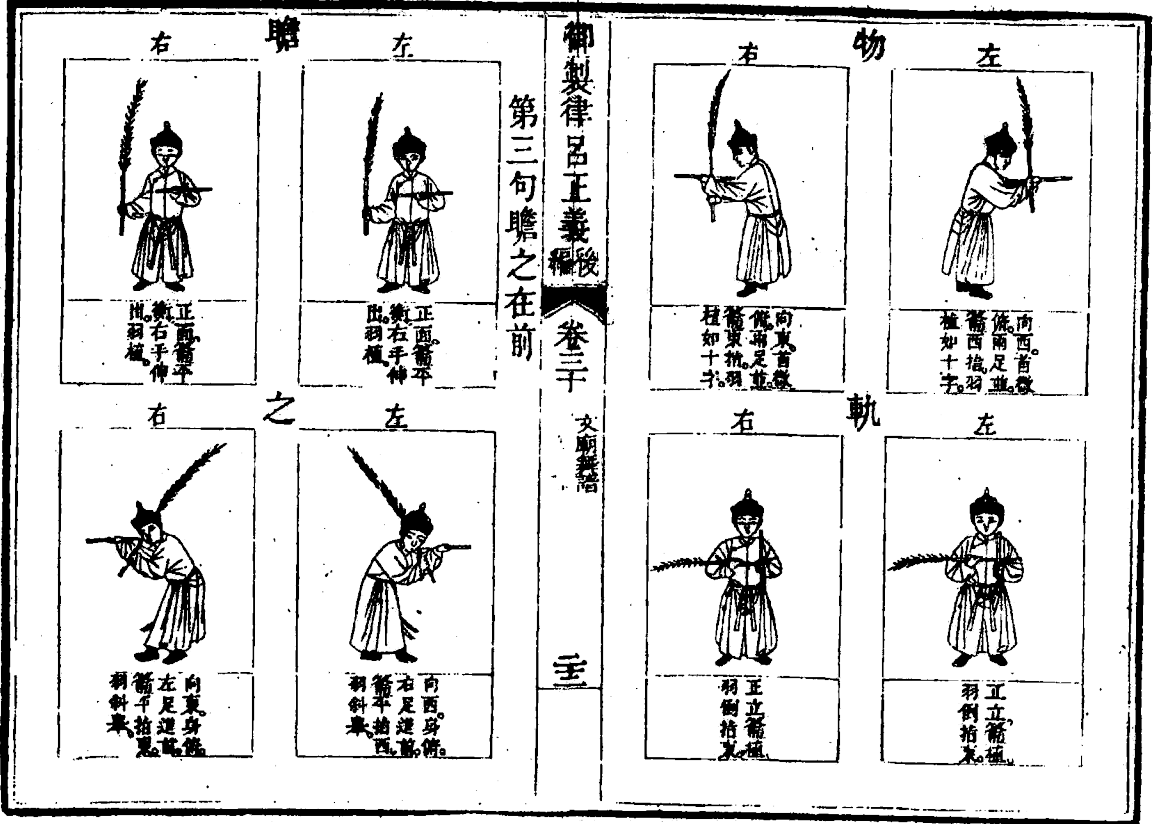 物
左
向西。首微
俯。兩足並。
籥西指。羽
植如十字。
右
向東。首微
俯。兩足並。
籥東指。羽
植如十字。
軌
左
正立籥植。
羽倒指東。
右
正立籥植。
羽倒指東。
御製律呂正義後編
卷三十
文廟舞譜
第三句瞻之在前
瞻
左
正面。籥平
衡。右手伸
出。羽植。
右
正面。籥平
衡。右手伸
出。羽植。
之
左
向西。身俯。
右足進前。
籥平指西。
羽斜舉。
右
向東。身俯。
左足進前。
籥平指東。
羽斜舉。